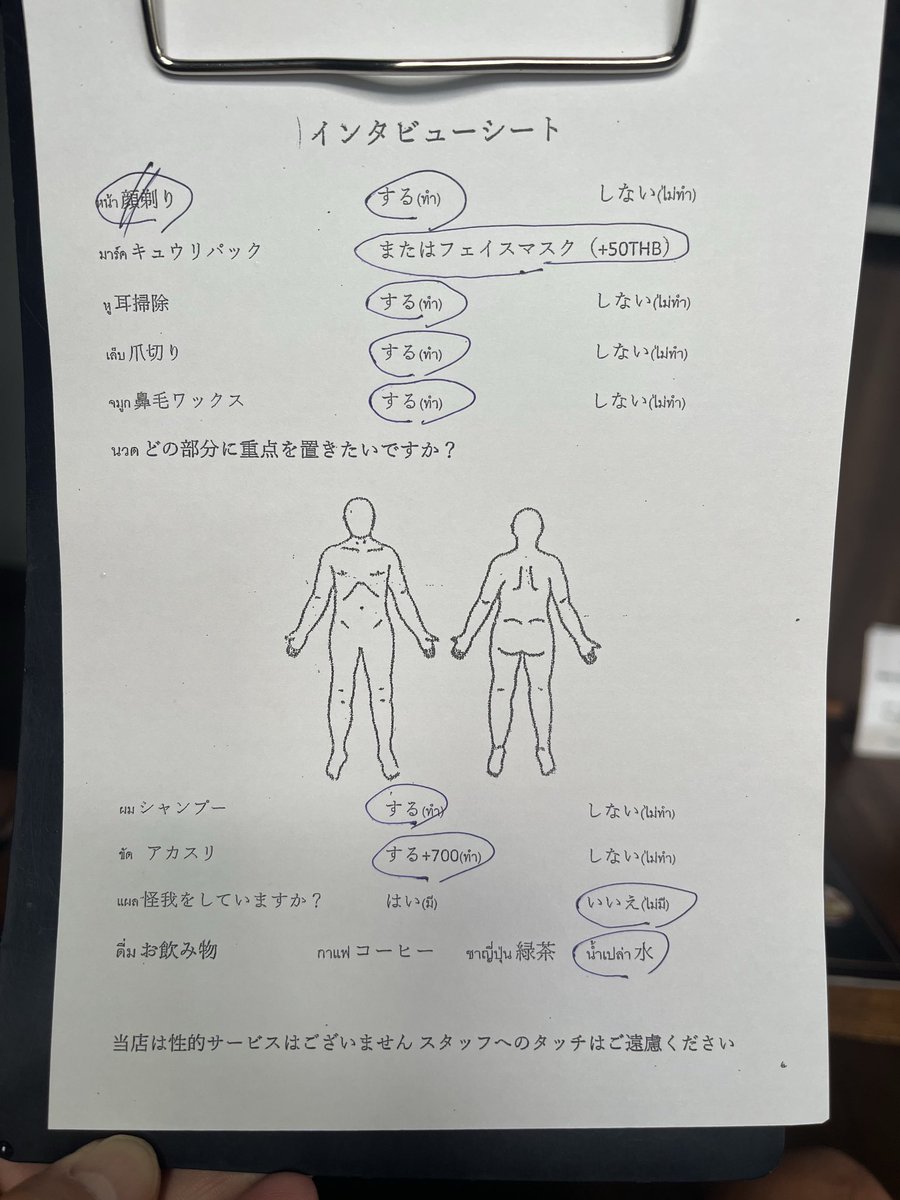 インタビューシート
หน้า 顔剃り する(ทำ) しない(ไม่ทำ)
มาร์ค キュウリパック またはフェイスマスク（+50THB）
หู 耳掃除 する(ทำ) しない(ไม่ทำ)
เล็บ 爪切り する(ทำ) しない(ไม่ทำ)
จมูก 鼻毛ワックス する(ทำ) しない(ไม่ทำ)
นวด どの部分に重点を置きたいですか？
ผม シャンプー する(ทำ) しない(ไม่ทำ)
ขัด アカスリ する+700(ทำ) しない(ไม่ทำ)
แผล 怪我をしていますか？ はい(มี) いいえ(ไม่มี)
ดื่ม お飲み物 กาแฟ コーヒー ชาญี่ปุ่น 緑茶 น้ำเปล่า 水
当店は性的サービスはございません スタッフへのタッチはご遠慮ください